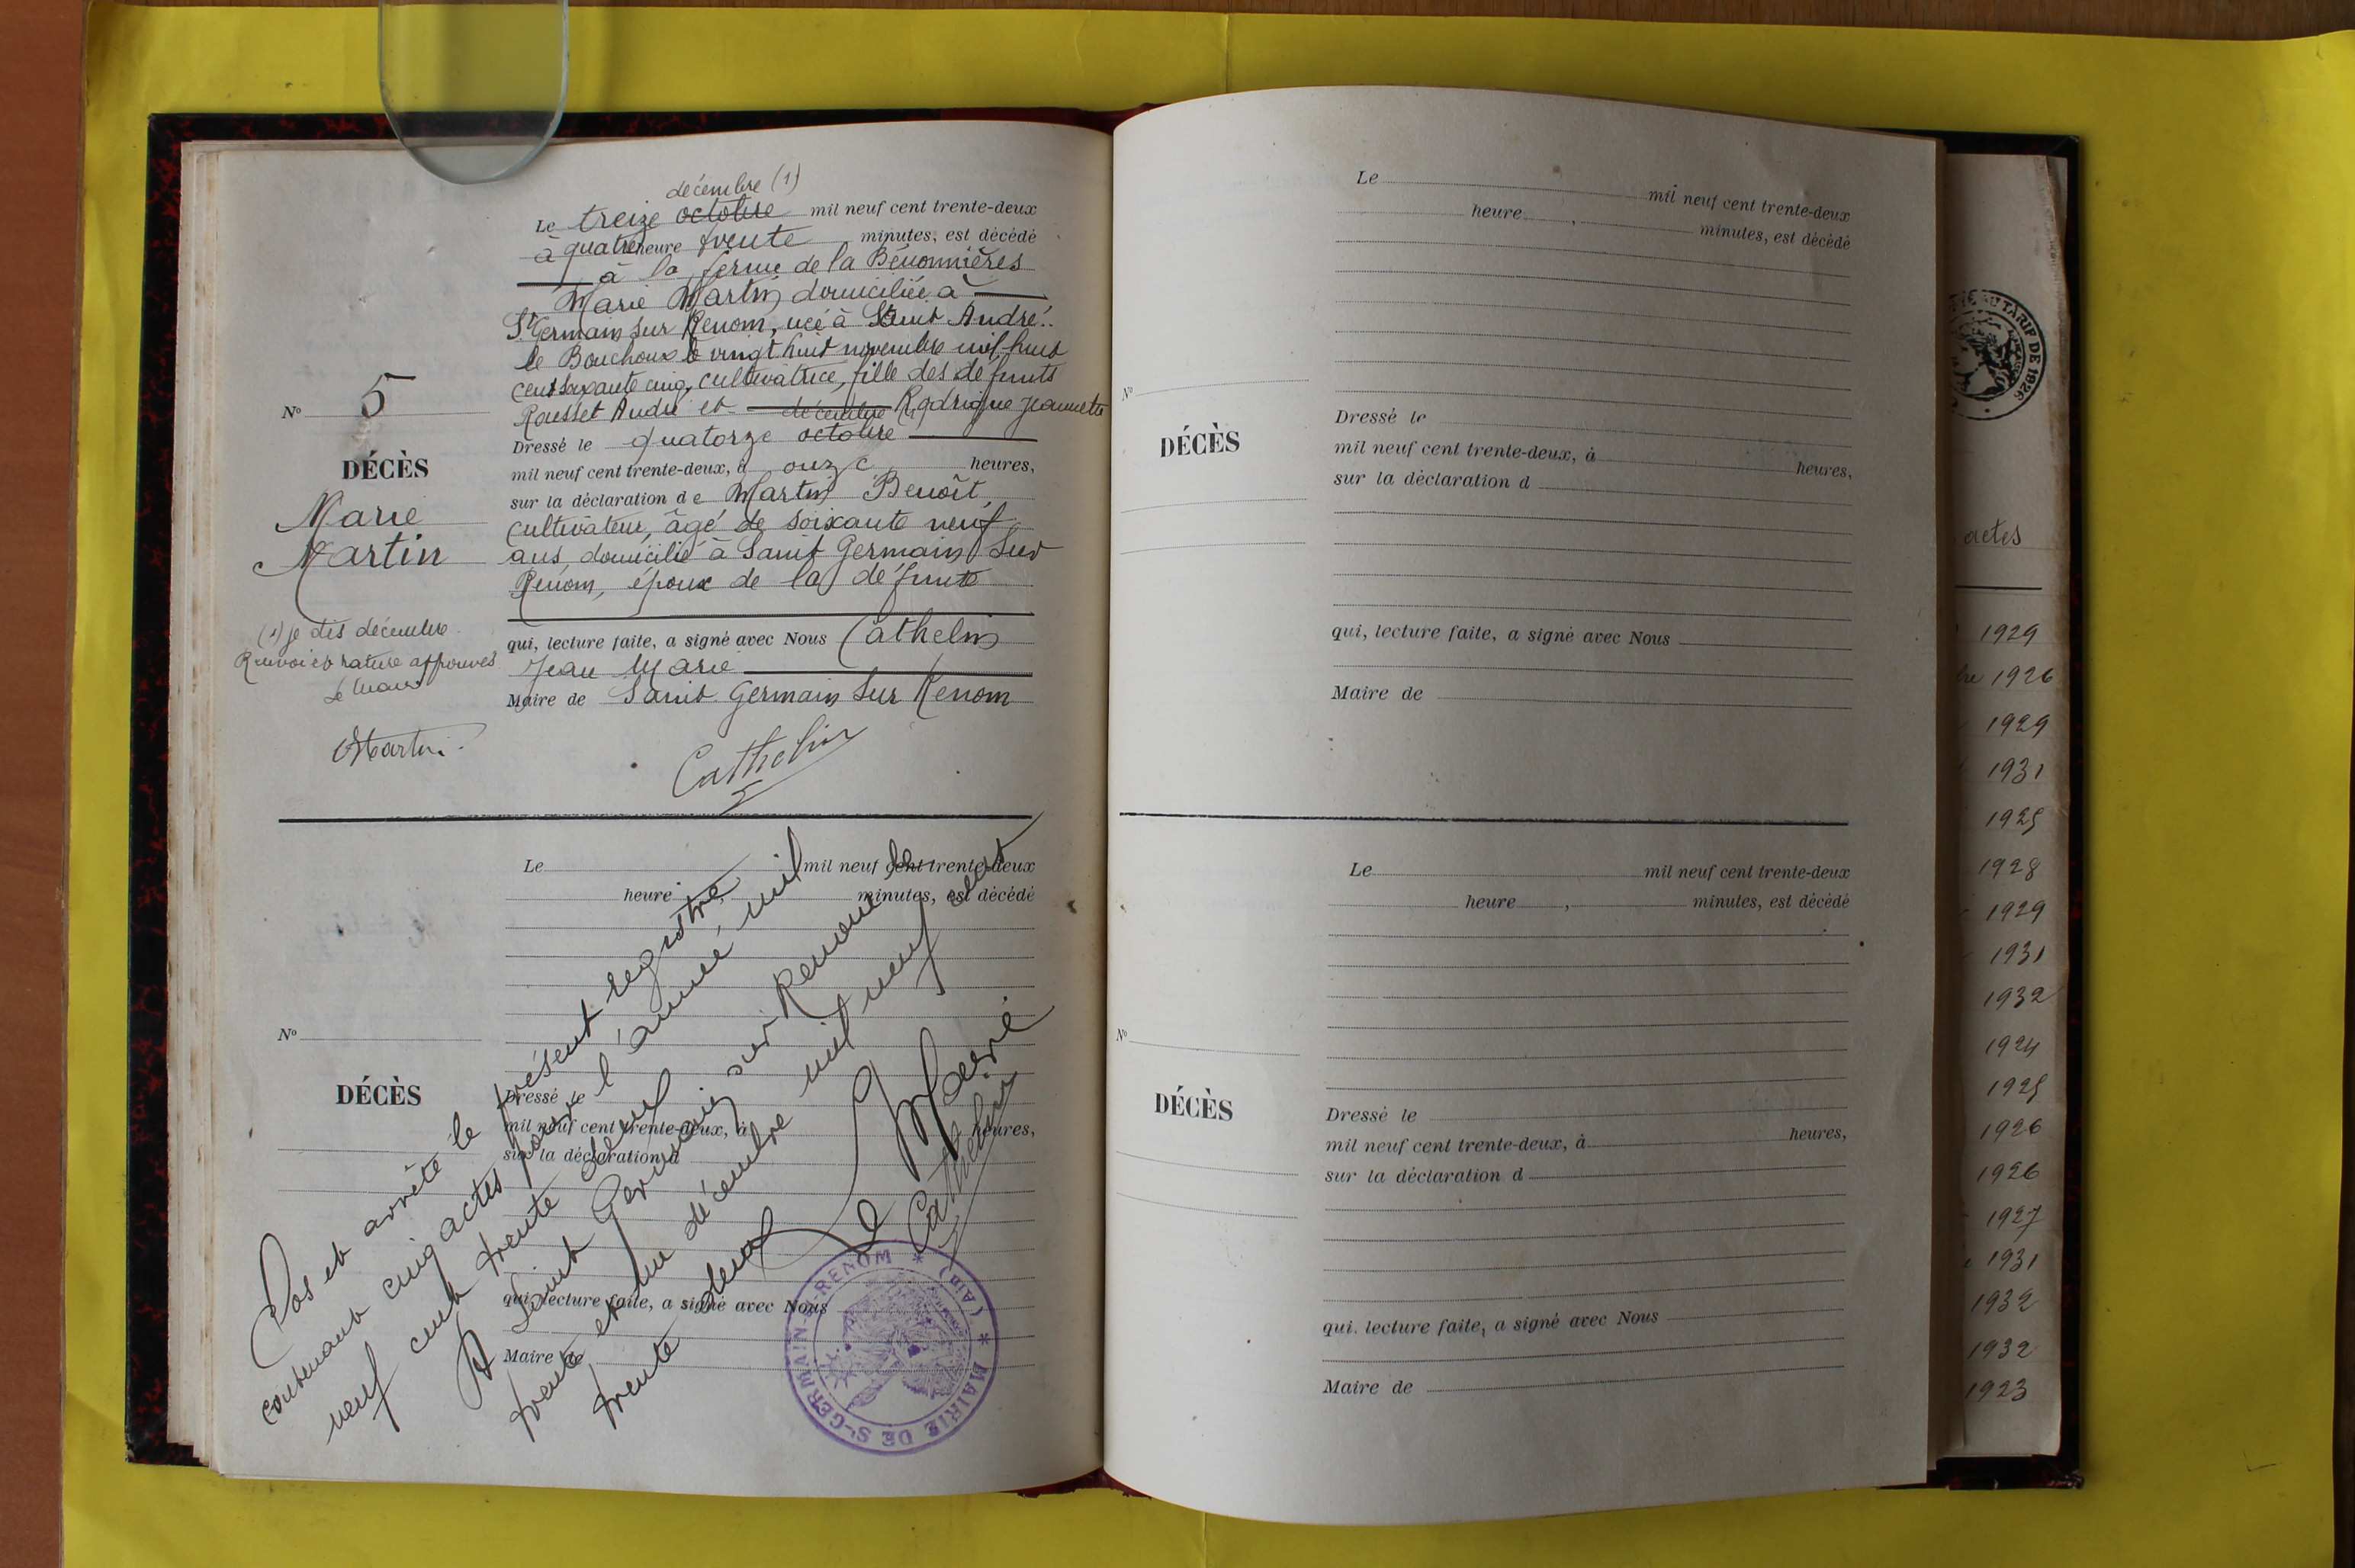 décembre (1)
Le treize octobre mil neuf cent trente-deux
à quatre heure trente minutes, est décédé
à la ferme de la Bévonnières
Marie Martin domiciliée à
St Germain sur Renom, née à Saint André..
le Bouchoux le vingt huit novembre mil huit
cent soixante cinq, cultivatrice, fille des défunts
Rousset André et Rodrigue Jeannette
décembre
Dressé le quatorze octobre
mil neuf cent trente-deux, à onze heures,
sur la déclaration de Martin Benoît,
cultivateur, âgé de soixante neuf
ans, domicilié à Saint Germain sur
Renom, époux de la défunte
qui, lecture faite, a signé avec Nous Cathelin
Jean Marie
Maire de Saint Germain sur Renom
Nº 5
DÉCÈS
Marie
Martin
(1) je dis décembre
Renvoi et rature approuvés
Le Maire
Martin
Cathelin
Le mil neuf cent trente-deux
heure , minutes, est décédé
Nº
DÉCÈS
Dressé le
mil neuf cent trente-deux, à heures,
sur la déclaration d
qui, lecture faite, a signé avec Nous
Maire de
Clos et arrêté le présent registre
contenant cinq actes pour l'année mil
neuf cent trente deux
A Saint Germain sur Renom le
trente et un décembre mil neuf cent
trente deux
Le Maire
Cathelin
MAIRIE DE St-GERMAIN-S-RENOM * (Ain) *
Le mil neuf cent trente-deux
heure , minutes, est décédé
Nº
DÉCÈS
Dressé le
mil neuf cent trente-deux, à heures,
sur la déclaration d
qui, lecture faite, a signé avec Nous
Maire de
Le mil neuf cent trente-deux
heure , minutes, est décédé
Nº
DÉCÈS
Dressé le
mil neuf cent trente-deux, à heures,
sur la déclaration d
qui. lecture faite, a signé avec Nous
Maire de
AU TARIF DE 1926
actes
1929
1926
1929
1931
1925
1928
1929
1931
1932
1924
1925
1926
1926
1927
1931
1932
1932
1923